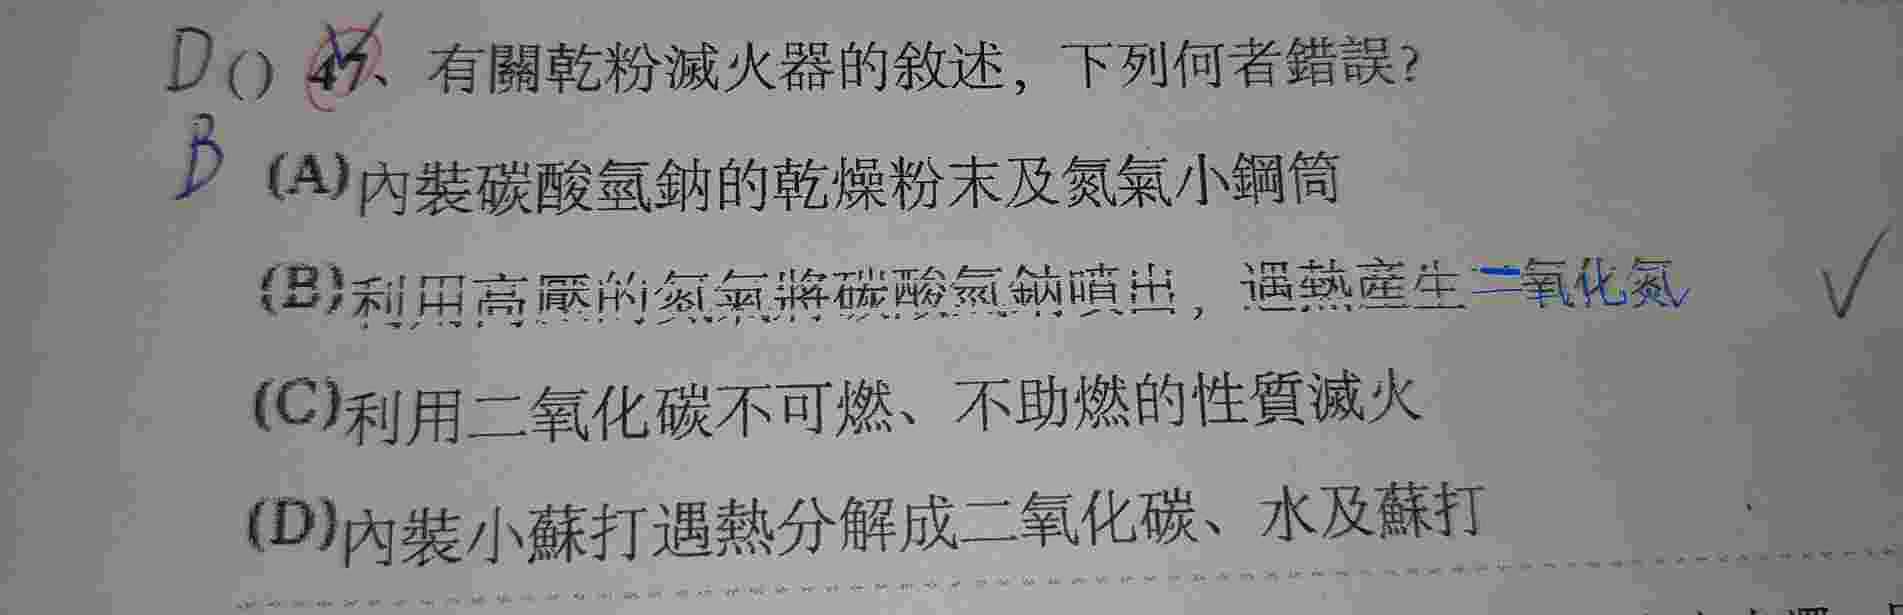 D() 47、有關乾粉滅火器的敘述，下列何者錯誤?
B
(A)內裝碳酸氫鈉的乾燥粉末及氮氣小鋼筒
(B)利用高壓的氮氣將碳酸氫鈉噴出，遇熱產生二氧化氮
(C)利用二氧化碳不可燃、不助燃的性質滅火
(D)內裝小蘇打遇熱分解成二氧化碳、水及蘇打